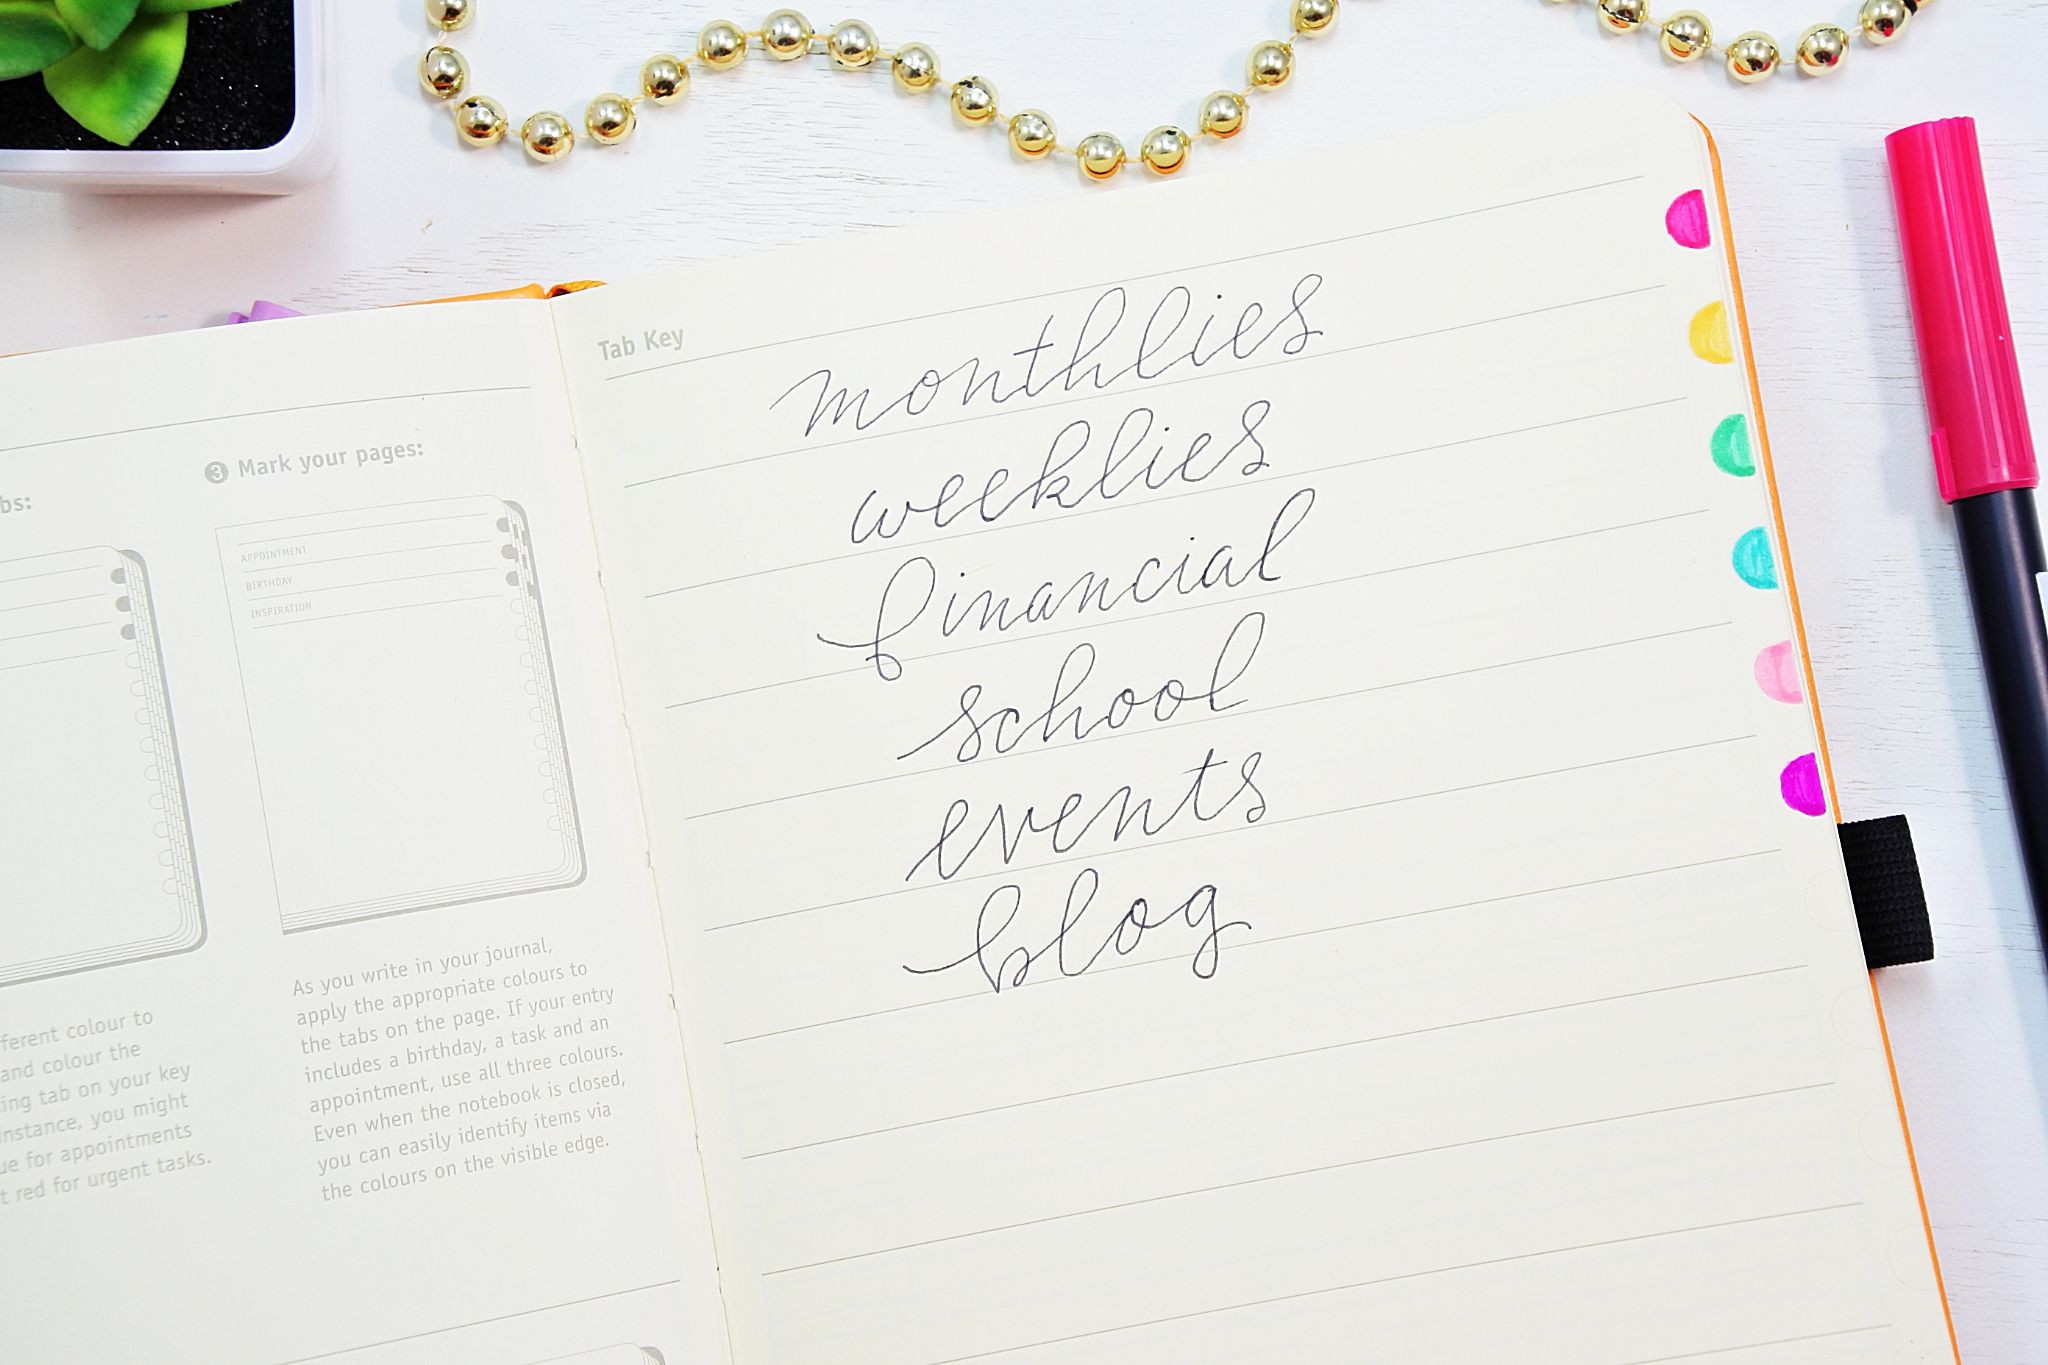 bs:
fferent colour to
and colour the
ing tab on your key
instance, you might
ue for appointments
t red for urgent tasks.
3 Mark your pages:
APPOINTMENT
BIRTHDAY
INSPIRATION
As you write in your journal,
apply the appropriate colours to
the tabs on the page. If your entry
includes a birthday, a task and an
appointment, use all three colours.
Even when the notebook is closed,
you can easily identify items via
the colours on the visible edge.
Tab Key
monthlies
weeklies
financial
school
events
blog